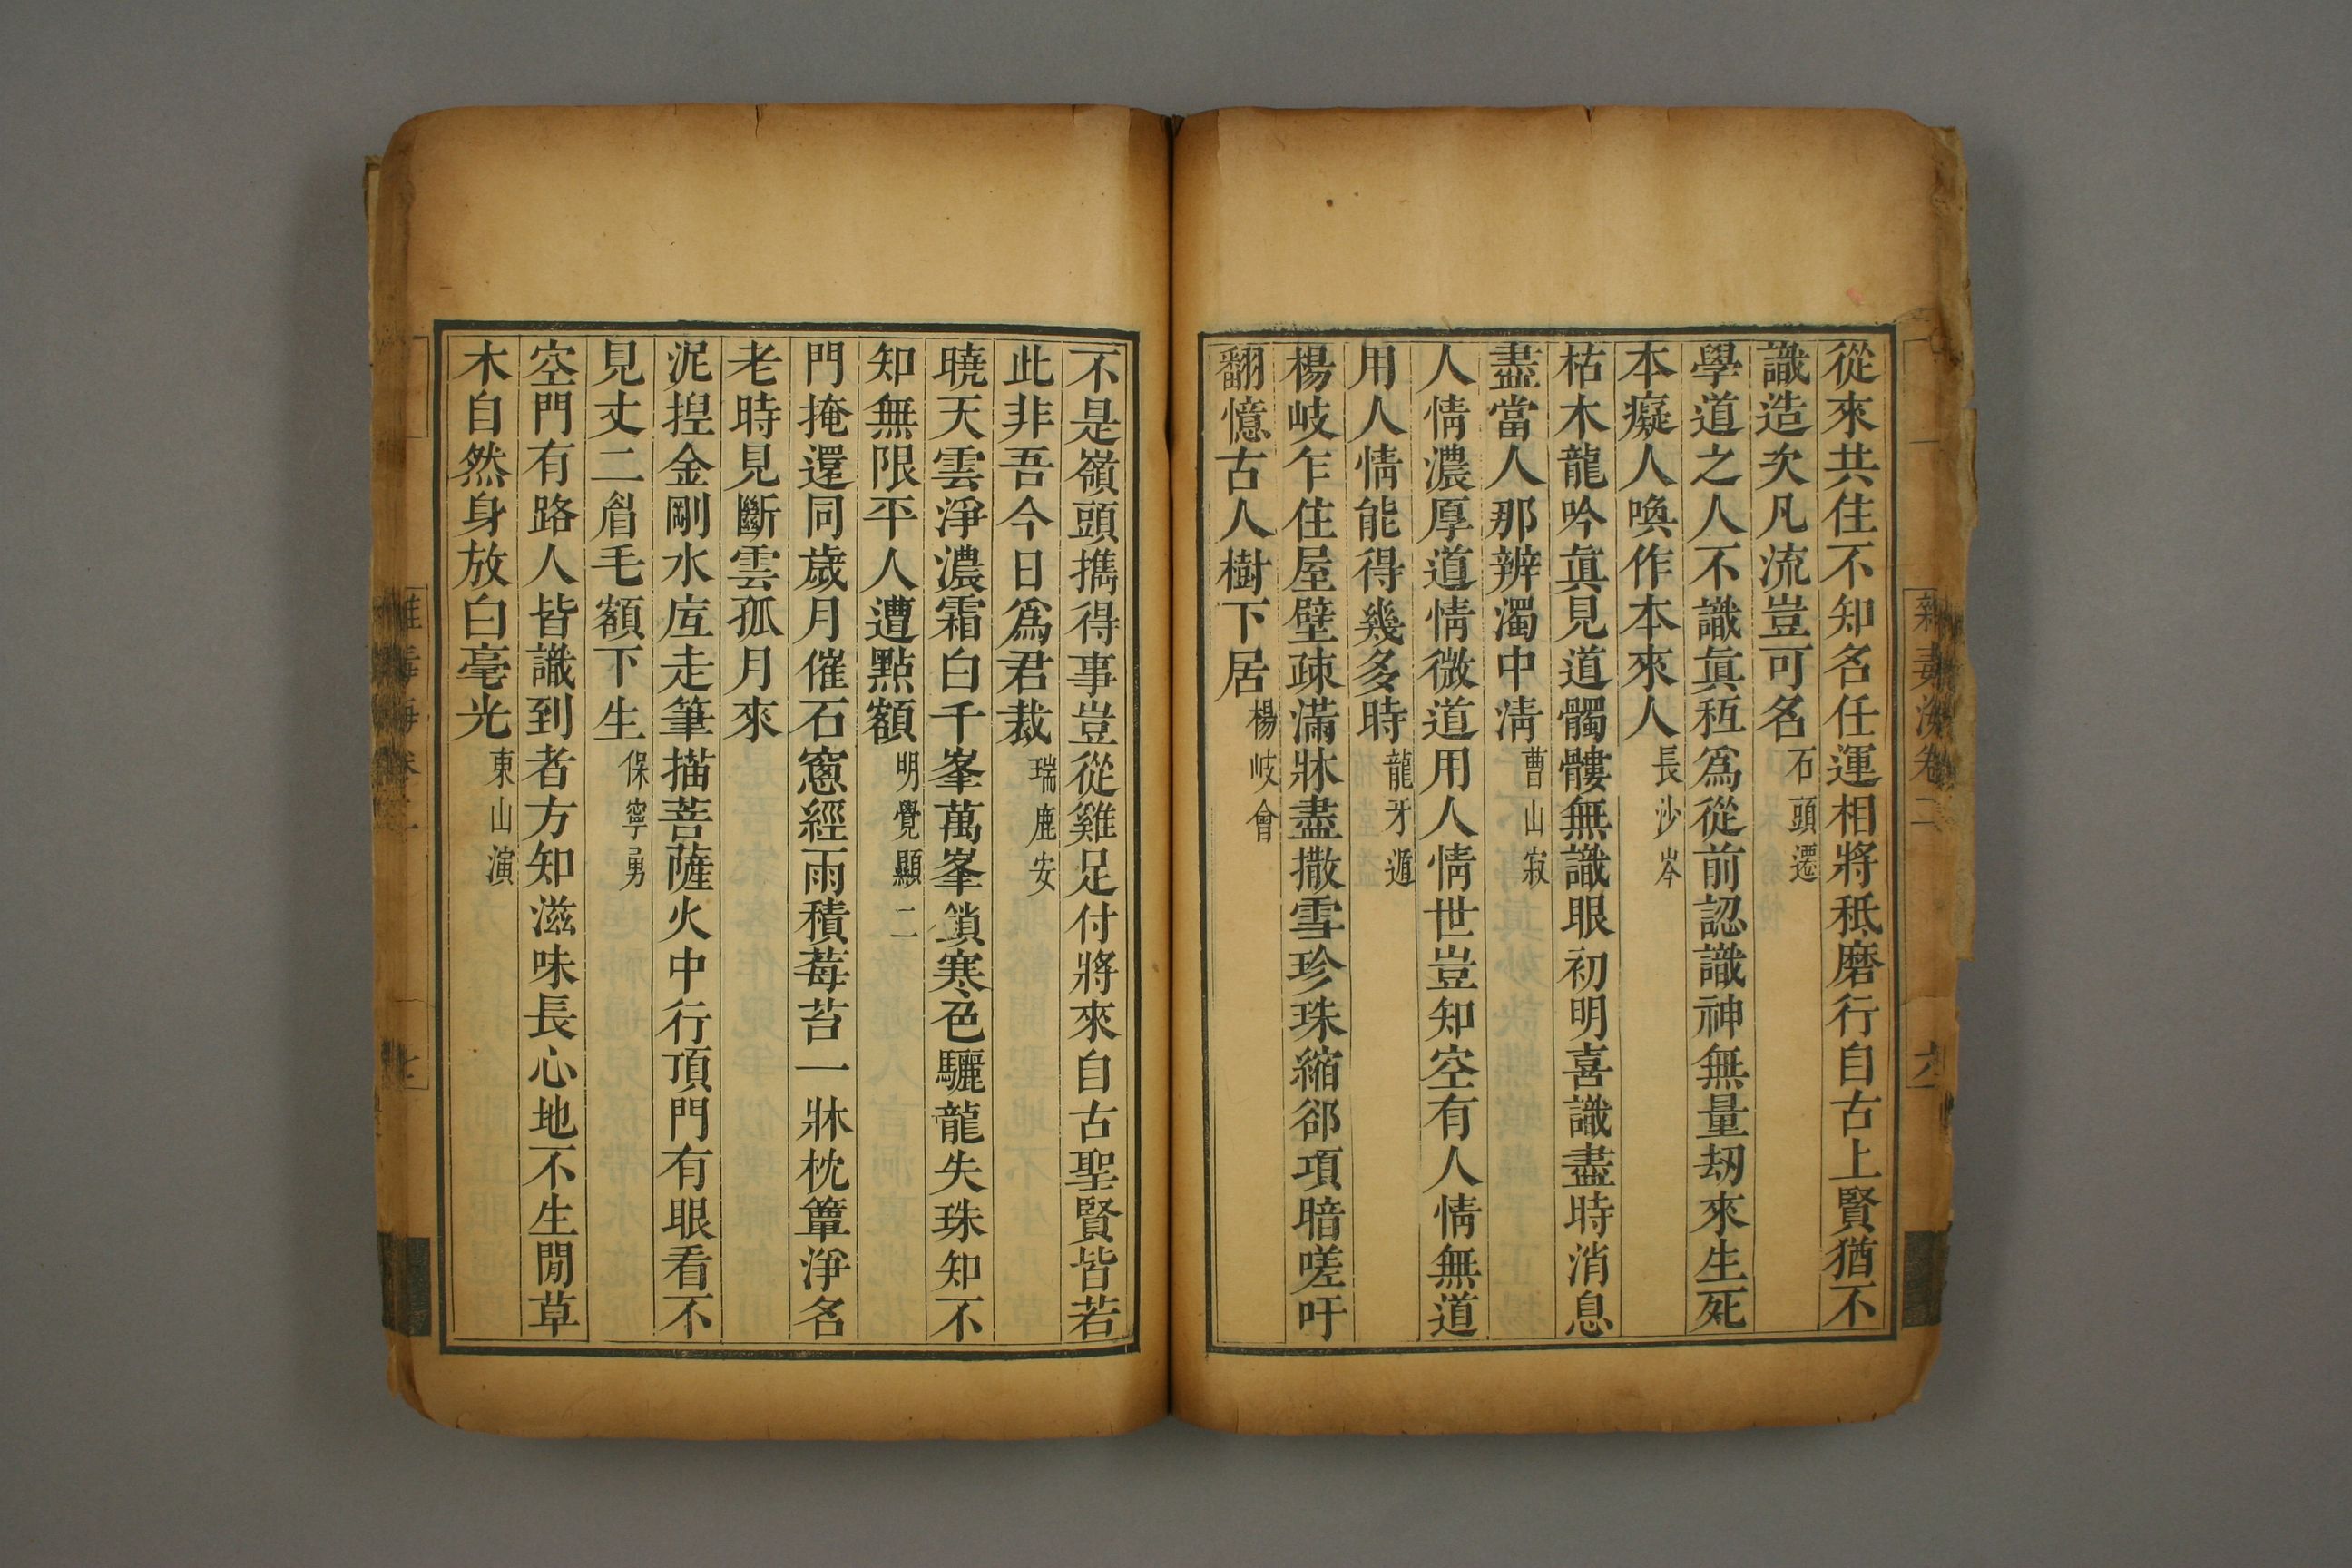 從來共住不知名任運相將秪磨行自古上賢猶不
識造次凡流豈可名石頭遷
學道之人不識眞秖爲從前認識神無量劫來生死
本癡人喚作本來人長沙岑
枯木龍吟眞見道髑髏無識眼初明喜識盡時消息
盡當人那辨濁中淸曹山寂
人情濃厚道情微道用人情世豈知空有人情無道
用人情能得幾多時龍牙遁
楊岐乍住屋壁疎滿牀盡撒雪珍珠縮郤項暗嗟吁
翻憶古人樹下居楊岐會
不是嶺頭擕得事豈從雞足付將來自古聖賢皆若
此非吾今日爲君裁瑞鹿安
曉天雲淨濃霜白千峯萬峯鎖寒色驪龍失珠知不
知無限平人遭點額明覺顯二
門掩還同歲月催石窻經雨積莓苔一牀枕簟淨名
老時見斷雲孤月來
泥揑金剛水底走筆描菩薩火中行頂門有眼看不
見丈二眉毛額下生保寧勇
空門有路人皆識到者方知滋味長心地不生閒草
木自然身放白毫光東山演
雜毒海卷二
六